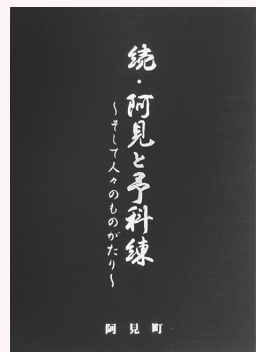 続・阿見と予科練
～そして人々のものがたり～
阿見町